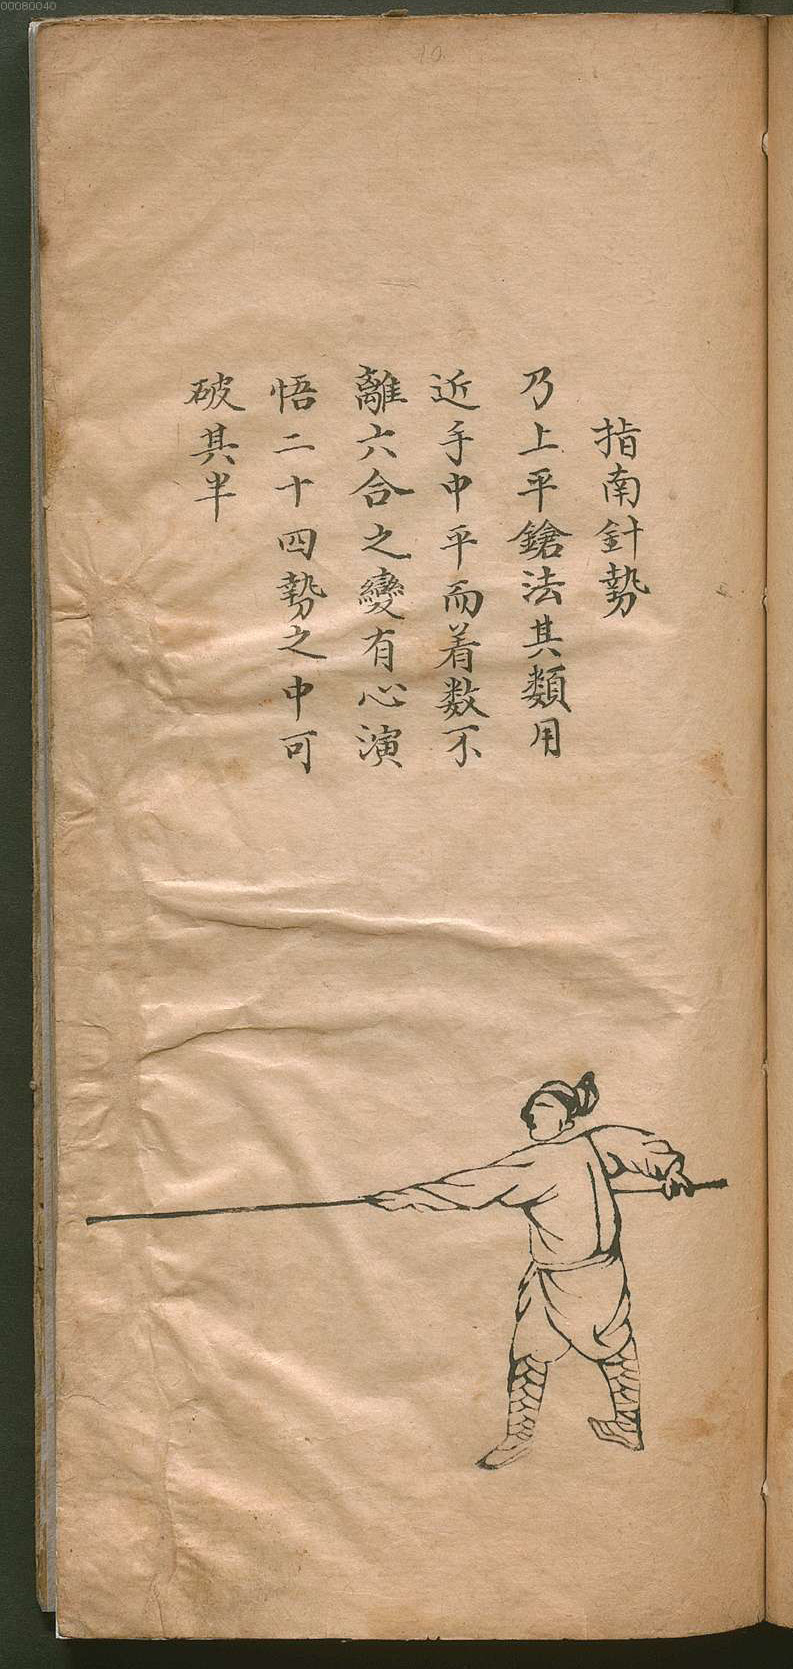 00080040
指南針勢
乃上平鎗法其類用
近手中平而着数不
離六合之變有心演
悟二十四勢之中可
破其半